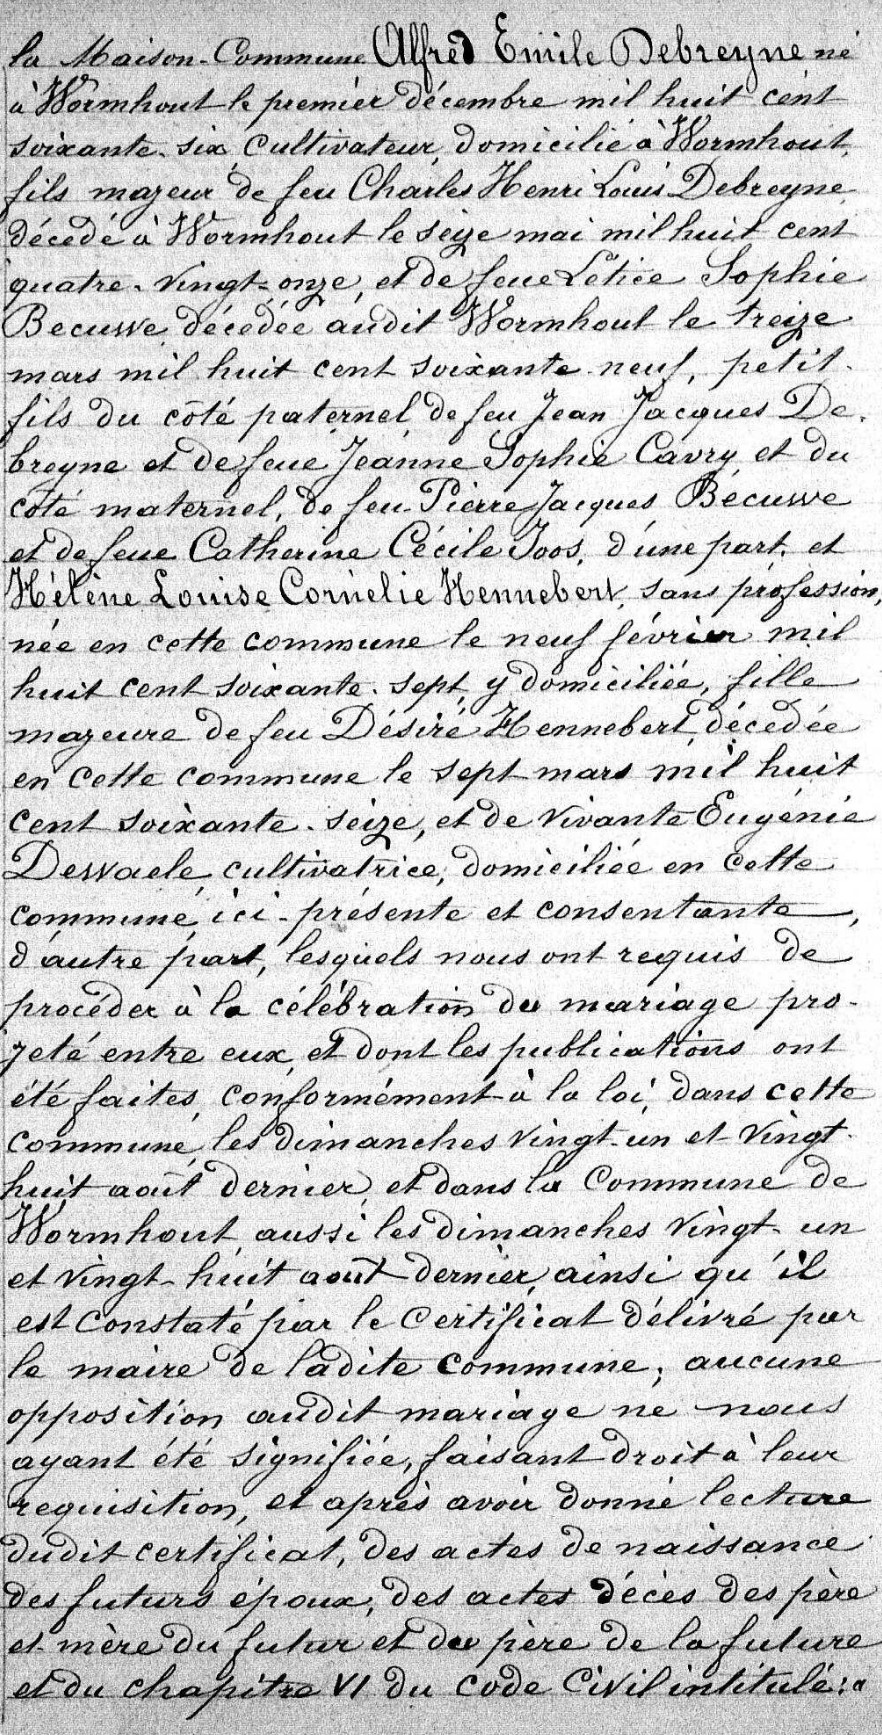 la Maison-Commune Alfred Emile Debreyne né
à Wormhout le premier décembre mil huit cent
soixante-six, cultivateur, domicilié à Wormhout,
fils majeur de feu Charles Henri Louis Debreyne
décédé à Wormhout le seize mai mil huit cent
quatre-vingt-onze, et de feue Létice Sophie
Becuwe décédée audit Wormhout le treize
mars mil huit cent soixante-neuf, petit-
fils du côté paternel de feu Jean Jacques De-
breyne et de feue Jeanne Sophie Cavry et du
côté maternel, de feu Pierre Jacques Bécuwe
et de feue Catherine Cécile Joos, d'une part, et
Hélène Louise Cornélie Hennebert, sans profession,
née en cette commune le neuf février mil
huit cent soixante-sept, y domiciliée, fille
majeure de feu Désiré Hennebert, décédée
en cette commune le sept mars mil huit
cent soixante-seize, et de vivante Eugénie
Dewaele, cultivatrice, domiciliée en cette
commune, ici-présente et consentante,
d'autre part, lesquels nous ont requis de
procéder à la célébration du mariage pro-
jeté entre eux, et dont les publications ont
été faites, conformément à la loi, dans cette
commune, les dimanches vingt-un et vingt-
huit août dernier, et dans la commune de
Wormhout, aussi les dimanches vingt-un
et vingt-huit août dernier, ainsi qu'il
est constaté par le certificat délivré par
le maire de ladite commune; aucune
opposition audit mariage ne nous
ayant été signifiée, faisant droit à leur
requisition, et après avoir donné lecture
dudit certificat, des actes de naissance
des futurs époux, des actes décès des père
et mère du futur et du père de la future
et du chapitre VI du code Civil intitulé: "